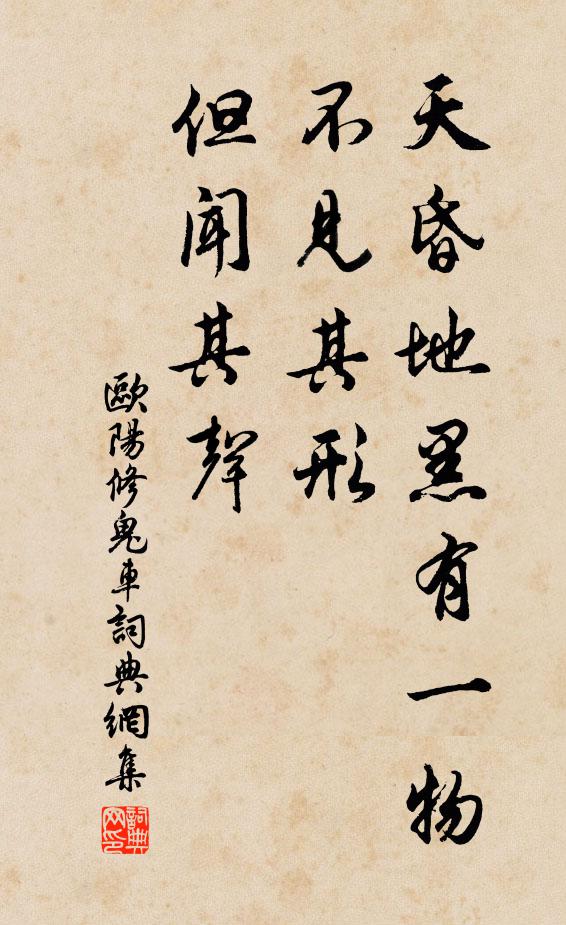 天昏地黑有一物
不見其形
但聞其聲
歐陽修鬼車詞典網集
詞典網印